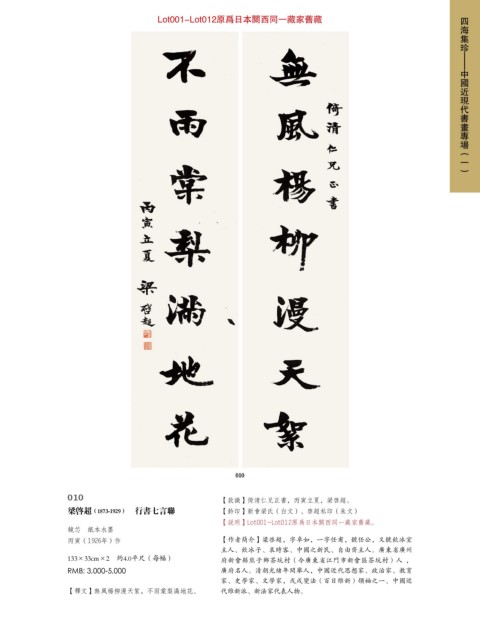 Lot001-Lot012原爲日本關西同一藏家舊藏
四海集珍——中國近現代書畫專場（一）
倚清仁兄正書
無風楊柳漫天絮
不雨棠梨滿地花
丙寅立夏 梁啓超
010
010
梁啓超（1873-1929） 行書七言聯
鏡芯 紙本水墨
丙寅（1926年）作
133×33cm×2 約4.0平尺（每幅）
RMB: 3,000-5,000
【釋文】無風楊柳漫天絮，不雨棠梨滿地花。
【款識】倚清仁兄正書，丙寅立夏，梁啓超。
【鈐印】新會梁氏（白文）、啓超私印（朱文）
【説明】Lot001-Lot012原爲日本關西同一藏家舊藏。
【作者簡介】梁啓超，字卓如，一字任甫，號任公，又號飲冰室
主人、飲冰子、哀時客、中國之新民、自由齋主人。廣東省廣州
府新會縣熊子鄉茶坑村（今廣東省江門市新會區茶坑村）人，
廣府名人。清朝光緒年間舉人，中國近代思想家、政治家、教育
家、史學家、文學家，戊戌變法（百日維新）領袖之一、中國近
代維新派、新法家代表人物。